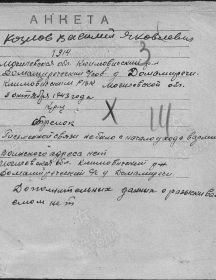 АНКЕТА
Козлов Василий Яковлевич
1914
3
Могилевская обл. Климовичский р-н
Домамеричский с/сов. д. Домамеричи.
Климовичским РВК Могилевской обл.
октября 1943 года
X
14
Стрелок
Письменной связи не было с начала ухода в армию
Воинского адреса нет
Могилевская обл. Климовичский р-н
Домамеричский с/с д. Домамеричи.
Дополнительных данных о разыскиваемом нет